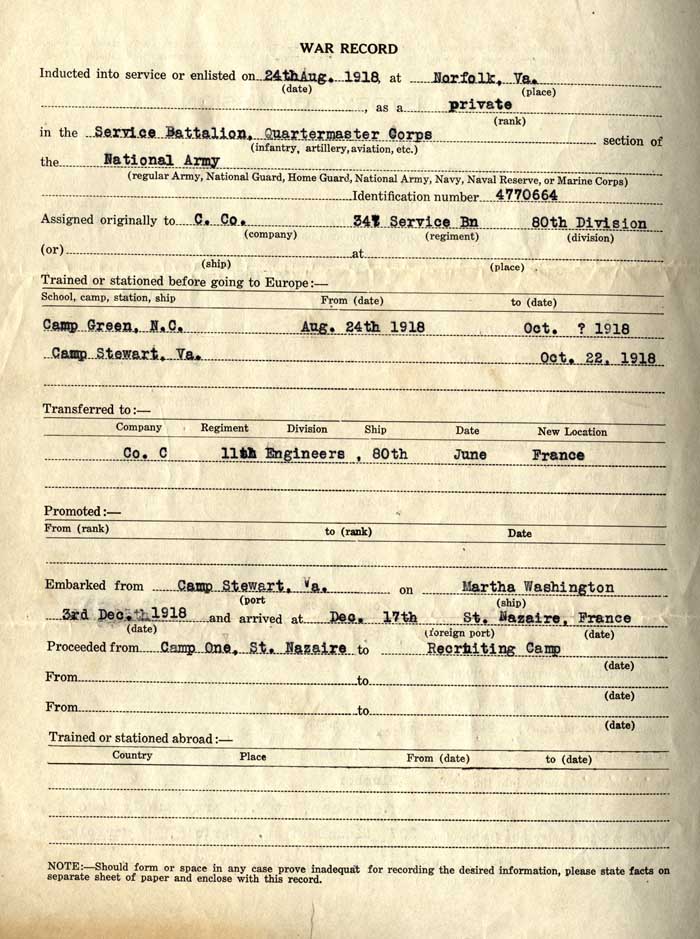 WAR RECORD
Inducted into service or enlisted on 24th Aug. 1918, at Norfolk, Va.
(date) (place)
, as a private
(rank)
in the Service Battalion, Quartermaster Corps section of
(infantry, artillery, aviation, etc.)
the National Army
(regular Army, National Guard, Home Guard, National Army, Navy, Naval Reserve, or Marine Corps)
Identification number 4770664
Assigned originally to C. Co. 347 Service Bn 80th Division
(company) (regiment) (division)
(or) at
(ship) (place)
Trained or stationed before going to Europe:—
School, camp, station, ship From (date) to (date)
Camp Green, N.C. Aug. 24th 1918 Oct. ? 1918
Camp Stewart, Va. Oct. 22, 1918
Transferred to:—
Company Regiment Division Ship Date New Location
Co. C 11th Engineers , 80th June France
Promoted:—
From (rank) to (rank) Date
Embarked from Camp Stewart, Va. on Martha Washington
(port (ship)
3rd Dec. 1918 and arrived at Dec. 17th St. Nazaire, France
(date) (foreign port) (date)
Proceeded from Camp One, St. Nazaire to Recruiting Camp
(date)
From to
(date)
From to
(date)
Trained or stationed abroad:—
Country Place From (date) to (date)
NOTE:—Should form or space in any case prove inadequat for recording the desired information, please state facts on
separate sheet of paper and enclose with this record.